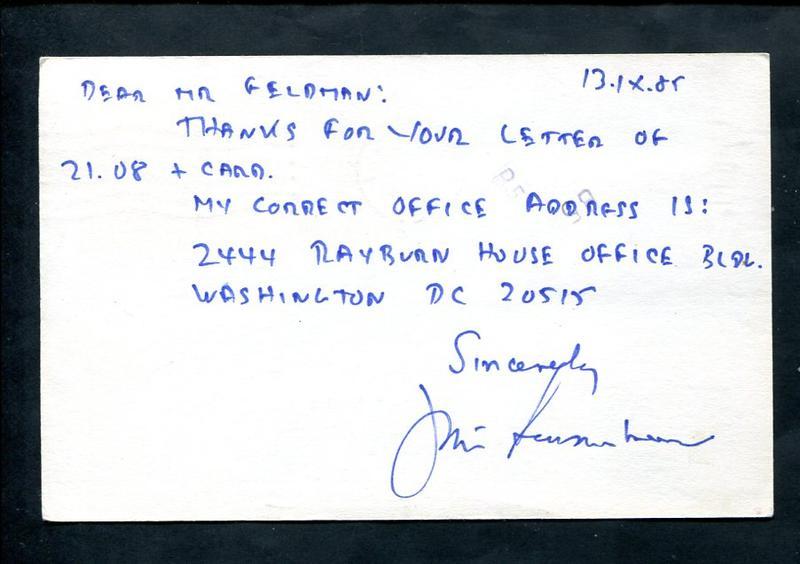 DEAR MR FELDMAN:
13.IX.85
THANKS FOR YOUR LETTER OF
21.08 + CARD.
MY CORRECT OFFICE ADDRESS IS:
2444 RAYBURN HOUSE OFFICE BLDG.
WASHINGTON DC 20515
Sincerely
Jim